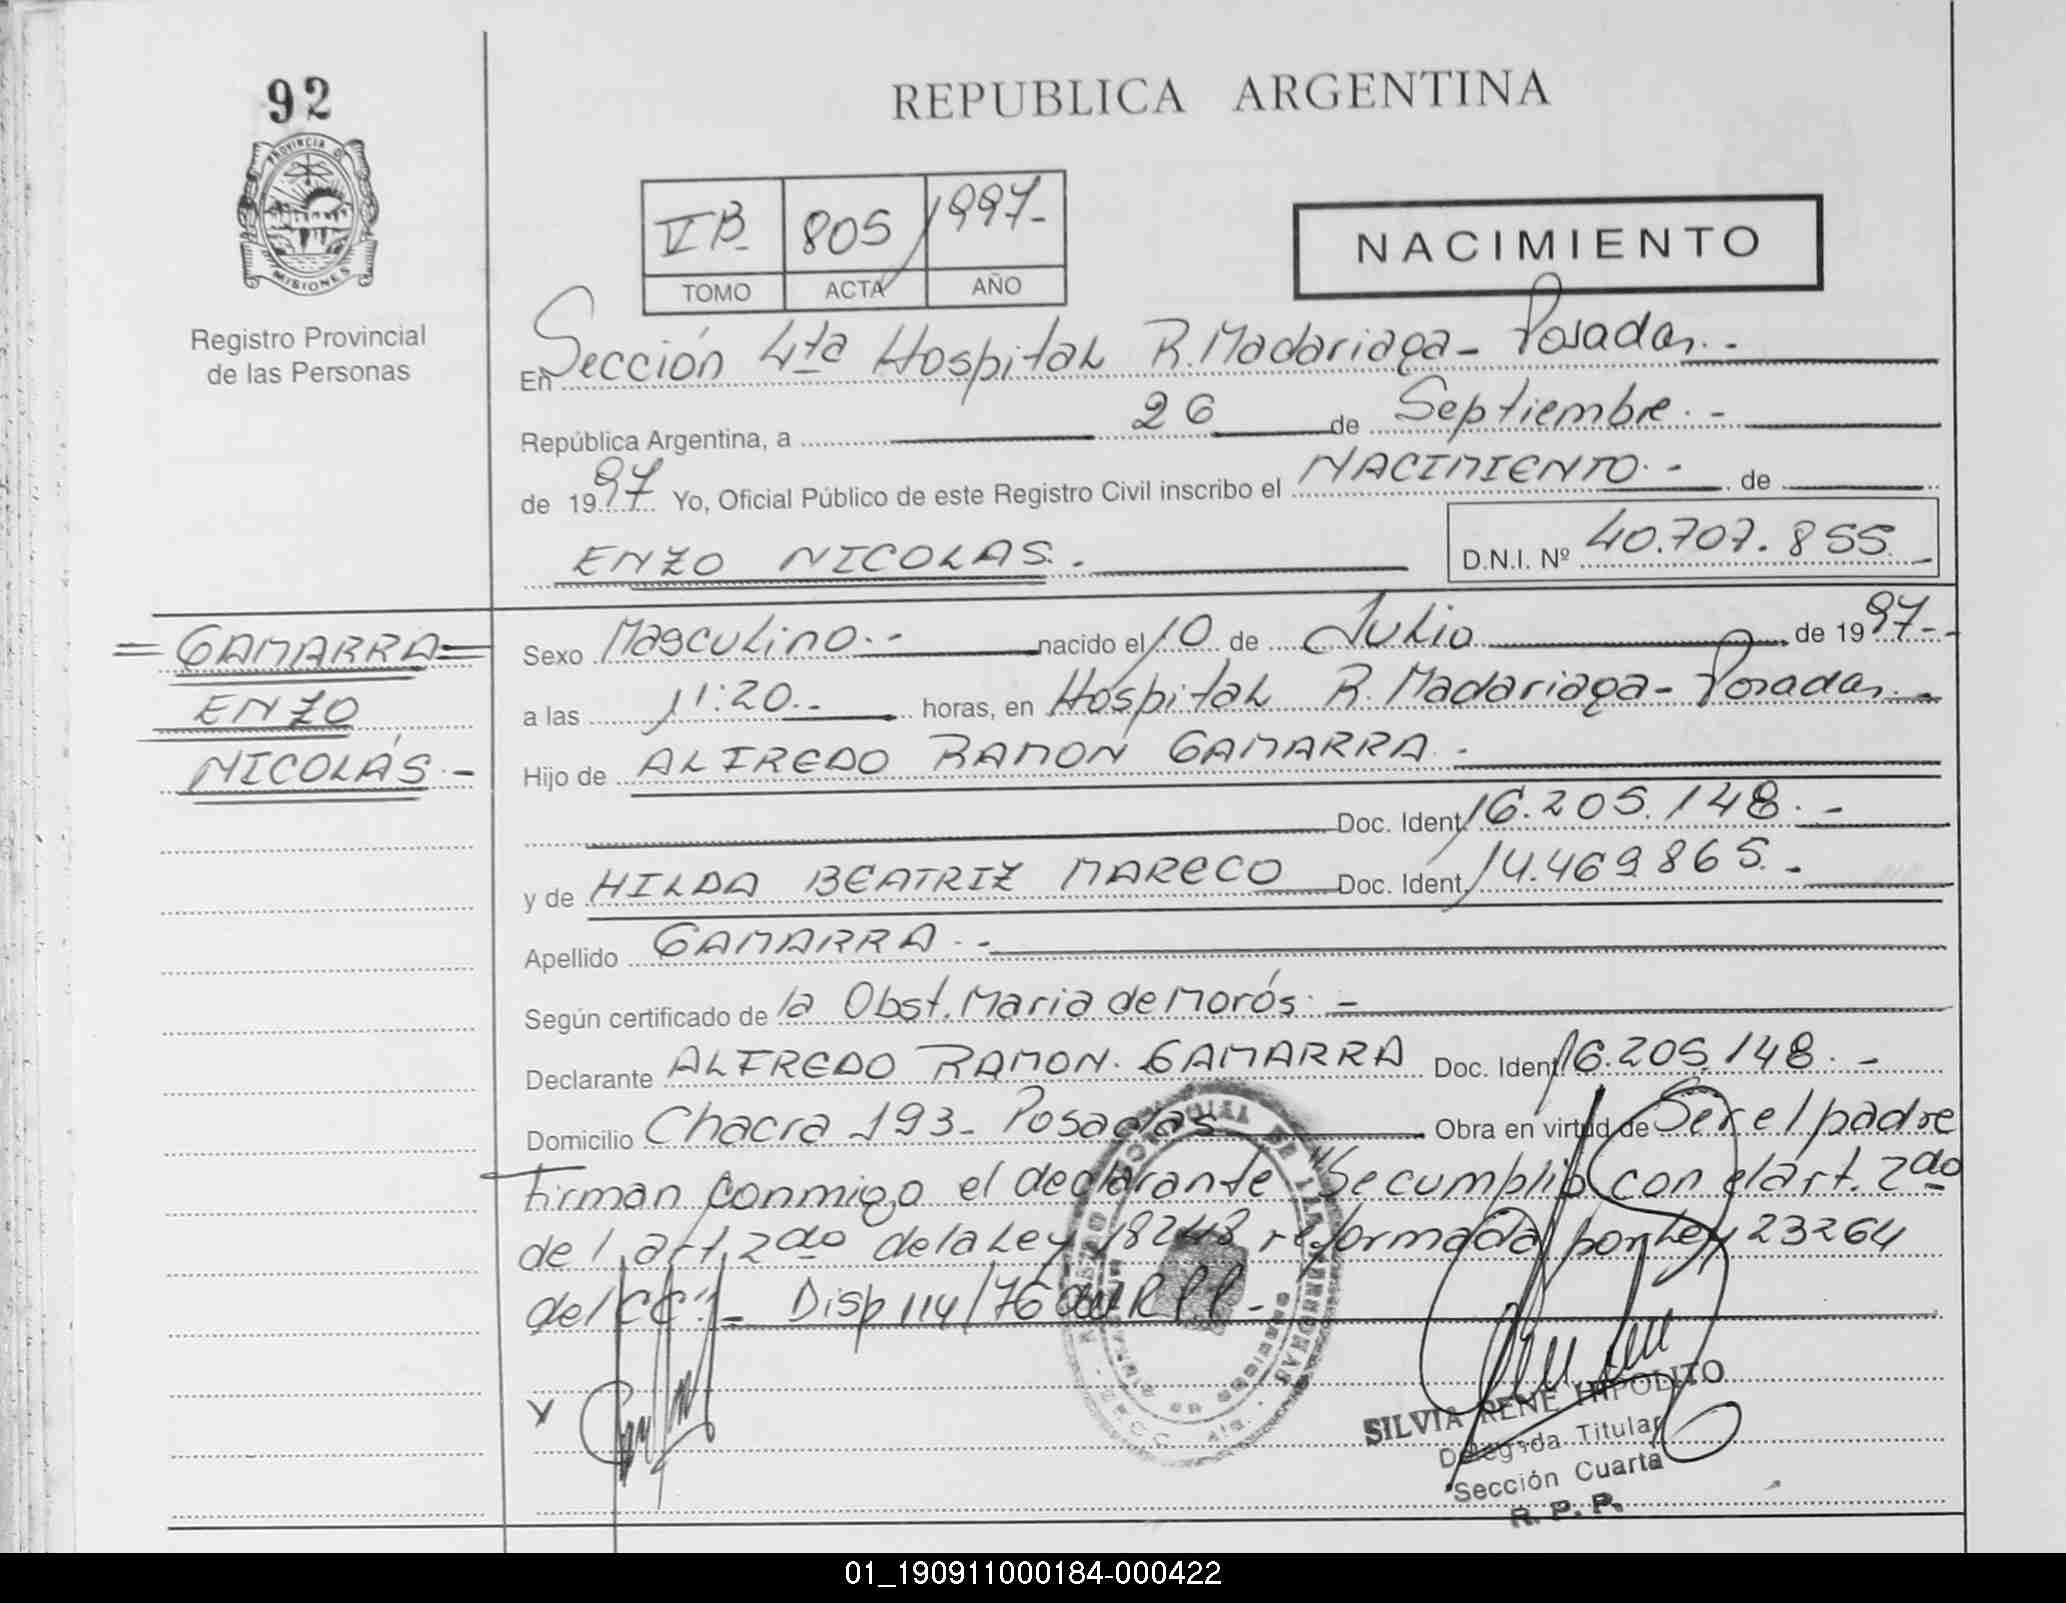 92
PROVINCIA D
MISIONES
Registro Provincial
de las Personas
REPUBLICA ARGENTINA
VB- 805 1997-
TOMO ACTA AÑO
NACIMIENTO
En Sección 4ta Hospital R. Madariaga - Posadas.-
República Argentina, a 26 de Septiembre.-
de 1997 Yo, Oficial Público de este Registro Civil inscribo el NACIMIENTO.- de
ENZO NICOLAS.- D.N.I. Nº 40.707.855.-
=GAMARRA=
ENZO
NICOLÁS.-
Sexo Masculino.- nacido el 10 de Julio de 1997.-
a las 11:20.- horas, en Hospital R. Madariaga - Posadas.-
Hijo de ALFREDO RAMON GAMARRA.-
Doc. Ident. 16.205.148.-
y de HILDA BEATRIZ MARECO Doc. Ident. 14.469865.-
Apellido GAMARRA.-
Según certificado de la Obst. Maria de Morós.-
Declarante ALFREDO RAMON. GAMARRA Doc. Ident. 16.205.148.-
Domicilio Chacra 193- Posadas Obra en virtud de Ser el padre
Firman conmigo el declarante "Se cumplió con el art. 2do
del art. 2do de la Ley 18248 reformada por Ley 23264
del CC".- Disp 114/76 del RPP.-
SILVIA RENE HIPOLITO
Delegada Titular
Sección Cuarta
R. P. P.
01_190911000184-000422